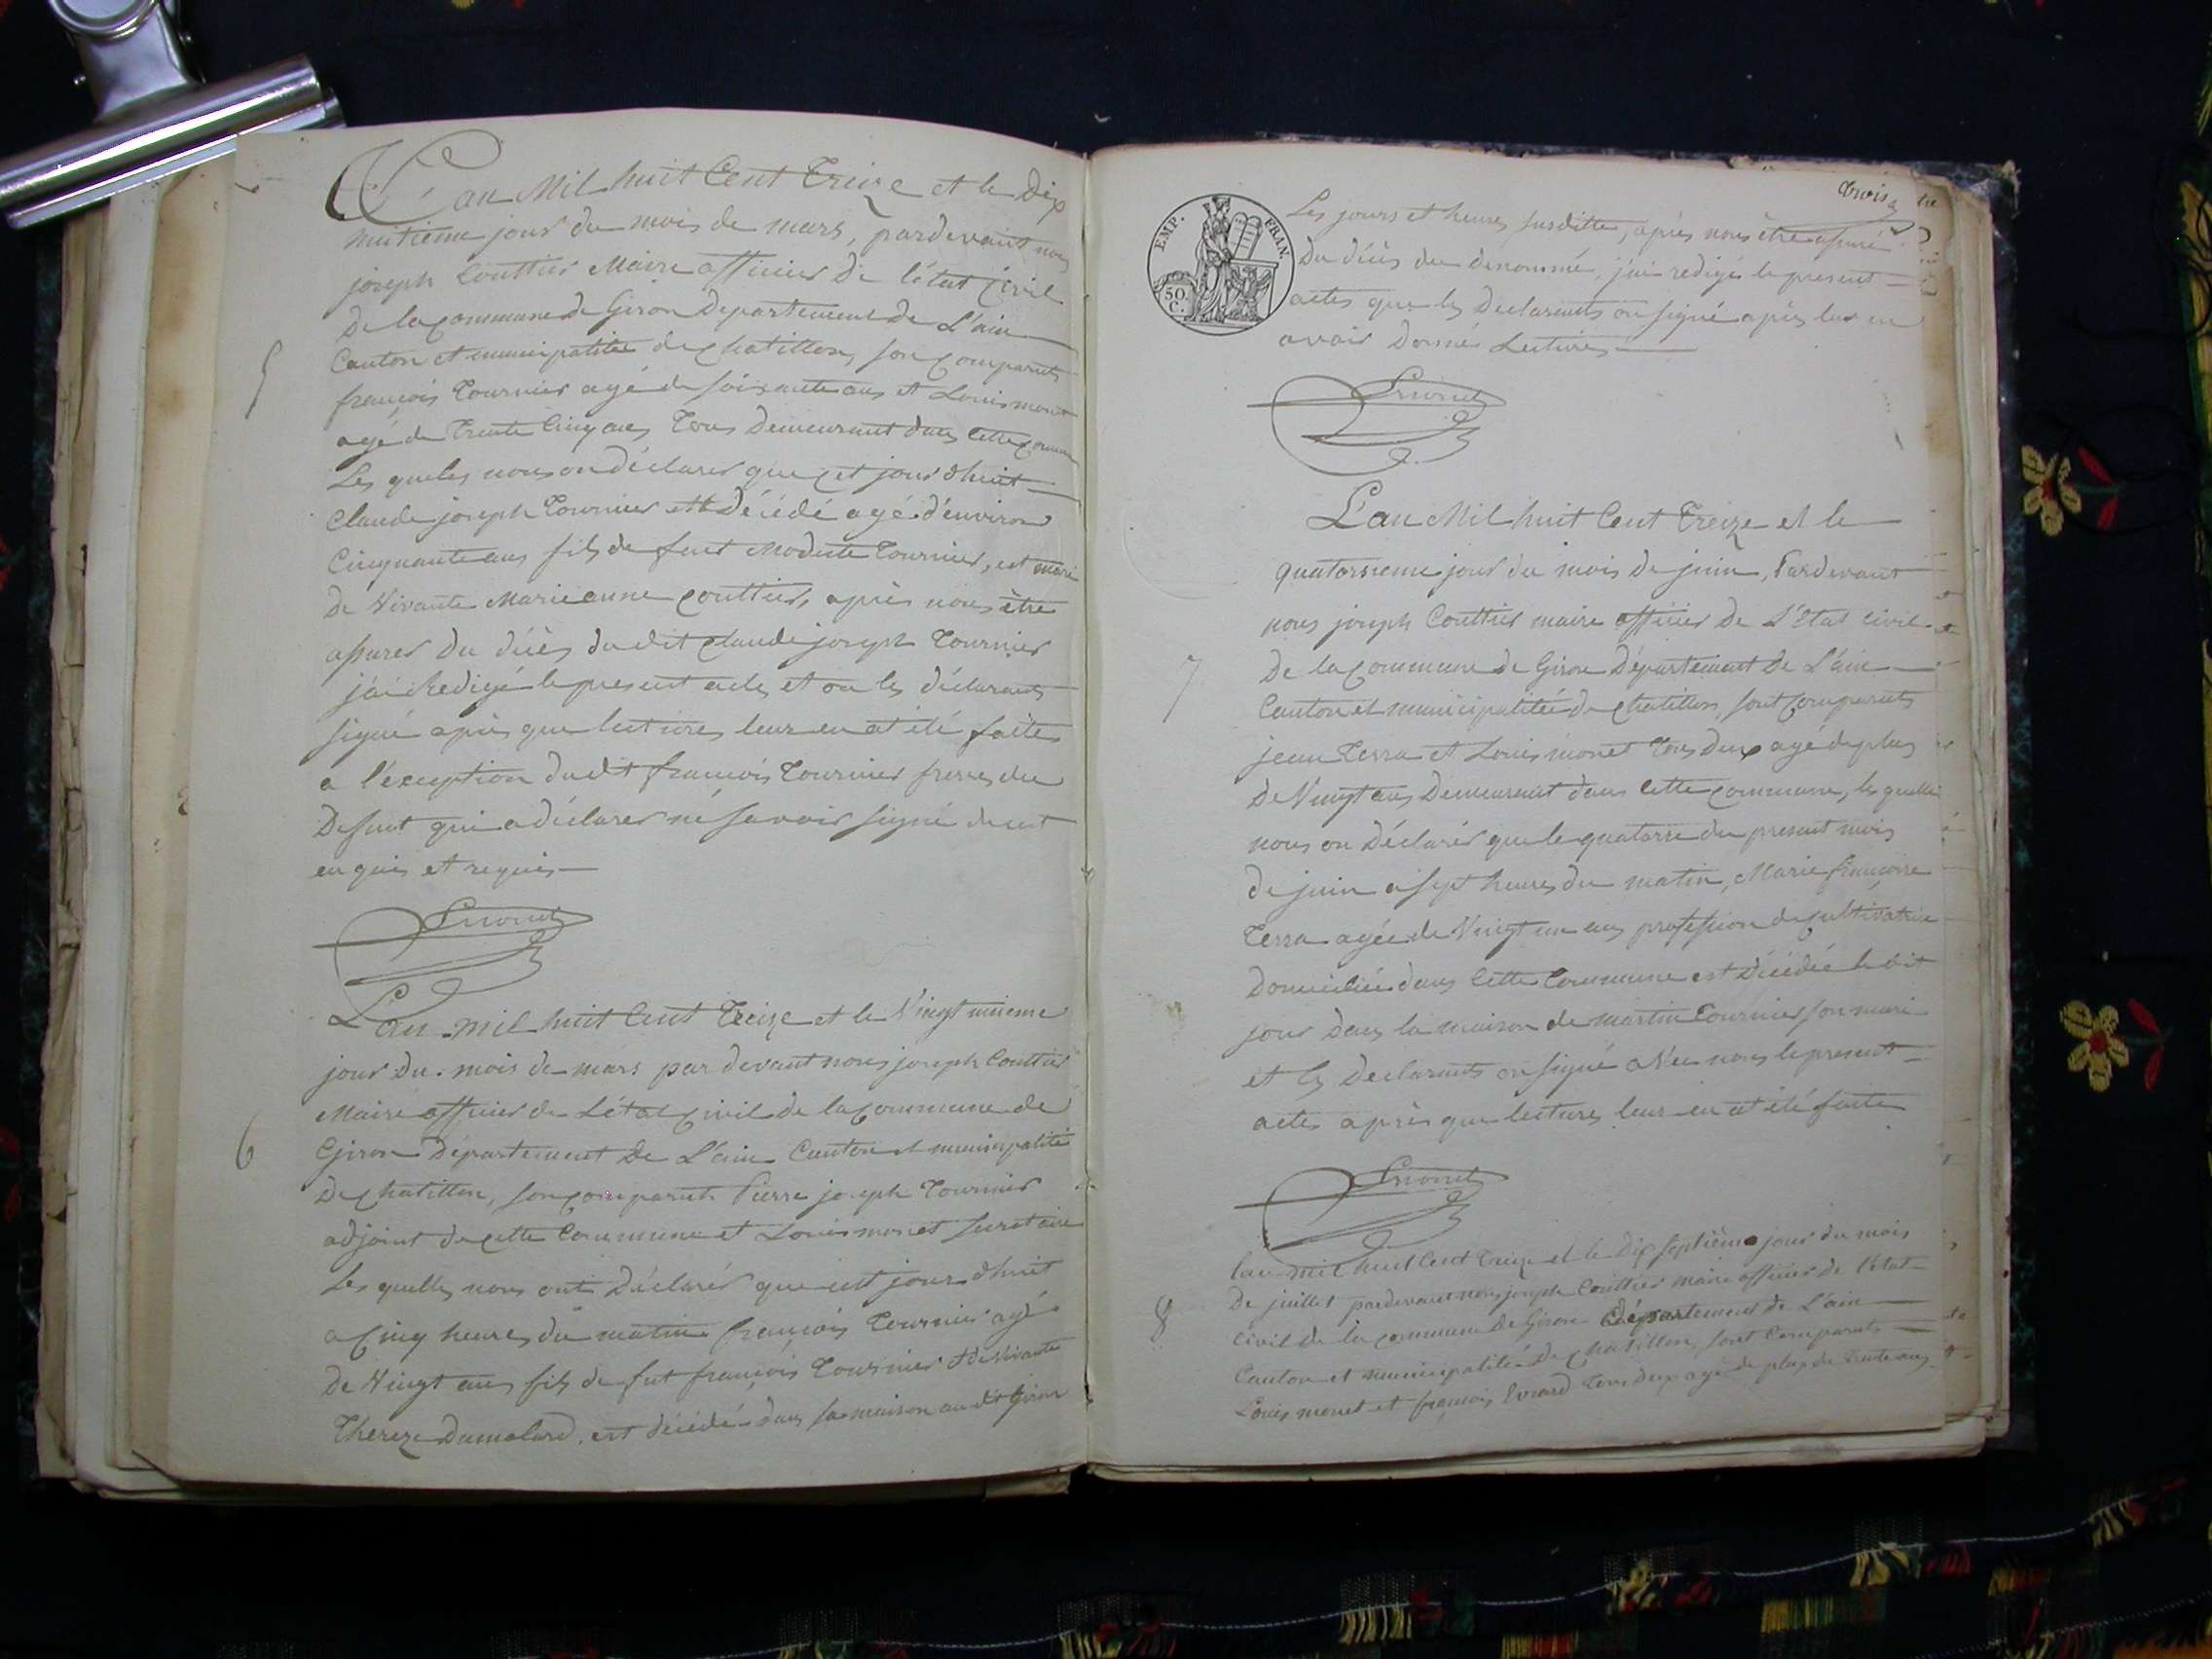 L'an Mil huit Cent Treize et le Dix
huitieme jour du mois de mars, pardevant nous
joseph Couttier Maire officier de l'état Civil
De la Commune de Giron Departement de L'ain
5
Canton et municipalitée de Chatillon, son Comparuts
françois Tournier agé de soixante ans et Louis monet
agé de Trente Cinq ans, Tous Demeurant dans cette Commune
Les quelles nous on déclarer que cet jour d'huit
Claude joseph Tournier est décédé agé d'environ
Cinquante ans fils de feut Modeste Tournier, est mari
De Vivante Marie anne Couttier, après nous être
assurer du décès du dit Claude joseph Tournier
j'ai Redigé le present actes et on les déclarants
signé après que lectures leur en at été faites
a l'exception du dit françois Tournier frerre du
Defunt qui a déclarer né savoir signé de cet
enquis et requis
Lmonet
L'an mil huit Cent Treize et le Vingt
jour du mois de mars par devant nous joseph Couttier
Maire officier de L'état Civil de la Commune de
6
Giron Département de L'ain Canton et municipalité
De Chatillon, son Comparuts Pierre joseph Tournier
adjoint de cette Commune et Louis monet secretaire
Les quelles nous onts Déclarér que cet jour d'huit
a Cinq heures du matin françois Tournier agé
de Vingt ans fils de fut françois Tournier et de Vivante
Thereze Dumolard, est décédé dans sa maison au dit Giron
Trois
EMP. FRAN.
50. C.
Les jours et heures susditte, après nous être assuré
Du décès du denommé, j'ai redigé le present
actes que les Declarants on signé après leur en
avoir Donné Lectures
Lmonet
L'an Mil huit Cent Treize et le
quatorsieme jour du mois de juin, Pardevant
nous joseph Couttier maire officier de L'Etat civil
7
De la Commune de Giron Département de L'ain
Canton et municipalitée de Chatillon, sont Comparuts
jean Terra et Louis monet Tous deux agé de plus
de Vingt ans Demeurent dans cette Commune, les quelle
nous on déclarér que le quatorze du present mois
de juin a sept heures du matin, Marie françoise
Terra agée de Vingt un ans profession de Cultivatrice
Domiciliée dans cette Commune est Décédée le dit
jour dans la maison de martin Tournier son mari
et les Declarants on signé aVec nous le present
actes après que lectures leur en at été faite
Lmonet
lan mil huit Cent Treize et le Dix septième jour du mois
De juillet pardevant nous joseph Couttier maire officier de l'état
8
Civil de la Commune de Giron Département de L'ain
Canton et municipalitée de Chatillon, sont Comparuts
Louis monet et françois Evrard Tous deux agé de plus de trente ans